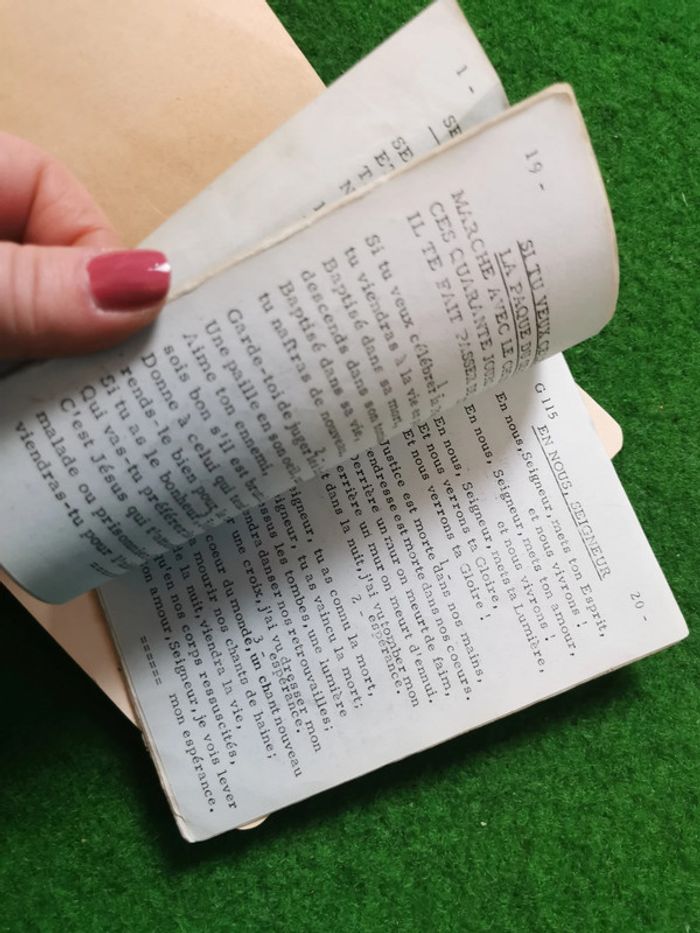 1 -
SE
SE
E
19 -
SI TU VEUX CE
LA PAQUE DU
MARCHE AVEC LE
CES QUARANTE JOUR
IL TE FAIT PASSER
1
Si tu veux célébrer la
tu viendras à la vie
descends dans son
Baptisé dans sa mort,
Baptisé dans sa vie,
tu naîtras de nouveau
2
Garde-toi de juger
Une paille en son oeil
Aime ton ennemi
sois bon s'il est
Donne à celui qui
rends le bien pour
Si tu as le bonheur
Qui vas-tu préférer
C'est Jésus qui
malade ou prisonnier
viendras-tu pour
====
20 -
G 115 EN NOUS, SEIGNEUR
En nous, Seigneur, mets ton Esprit,
et nous vivrons !
En nous, Seigneur, mets ton amour,
et nous vivrons !
En nous, Seigneur, mets ta Lumière,
Et nous verrons ta Gloire,
Et nous verrons ta Gloire !
1
Justice est morte dans nos mains,
tendresse est morte dans nos coeurs.
Derrière un mur on meurt de faim,
derrière un mur on meurt d'ennui.
dans la nuit, j'ai vu tomber mon
espérance.
2
Seigneur, tu as connu la mort,
Seigneur, tu as vaincu la mort;
sus les tombes, une lumière
viendra danser nos retrouvailles;
une croix, j'ai vu dresser mon
espérance.
3
coeur du monde, un chant nouveau
mourir nos chants de haine;
de la nuit, viendra la vie,
qu'en nos corps ressuscités,
ton amour, Seigneur, je vois lever
mon espérance.
======